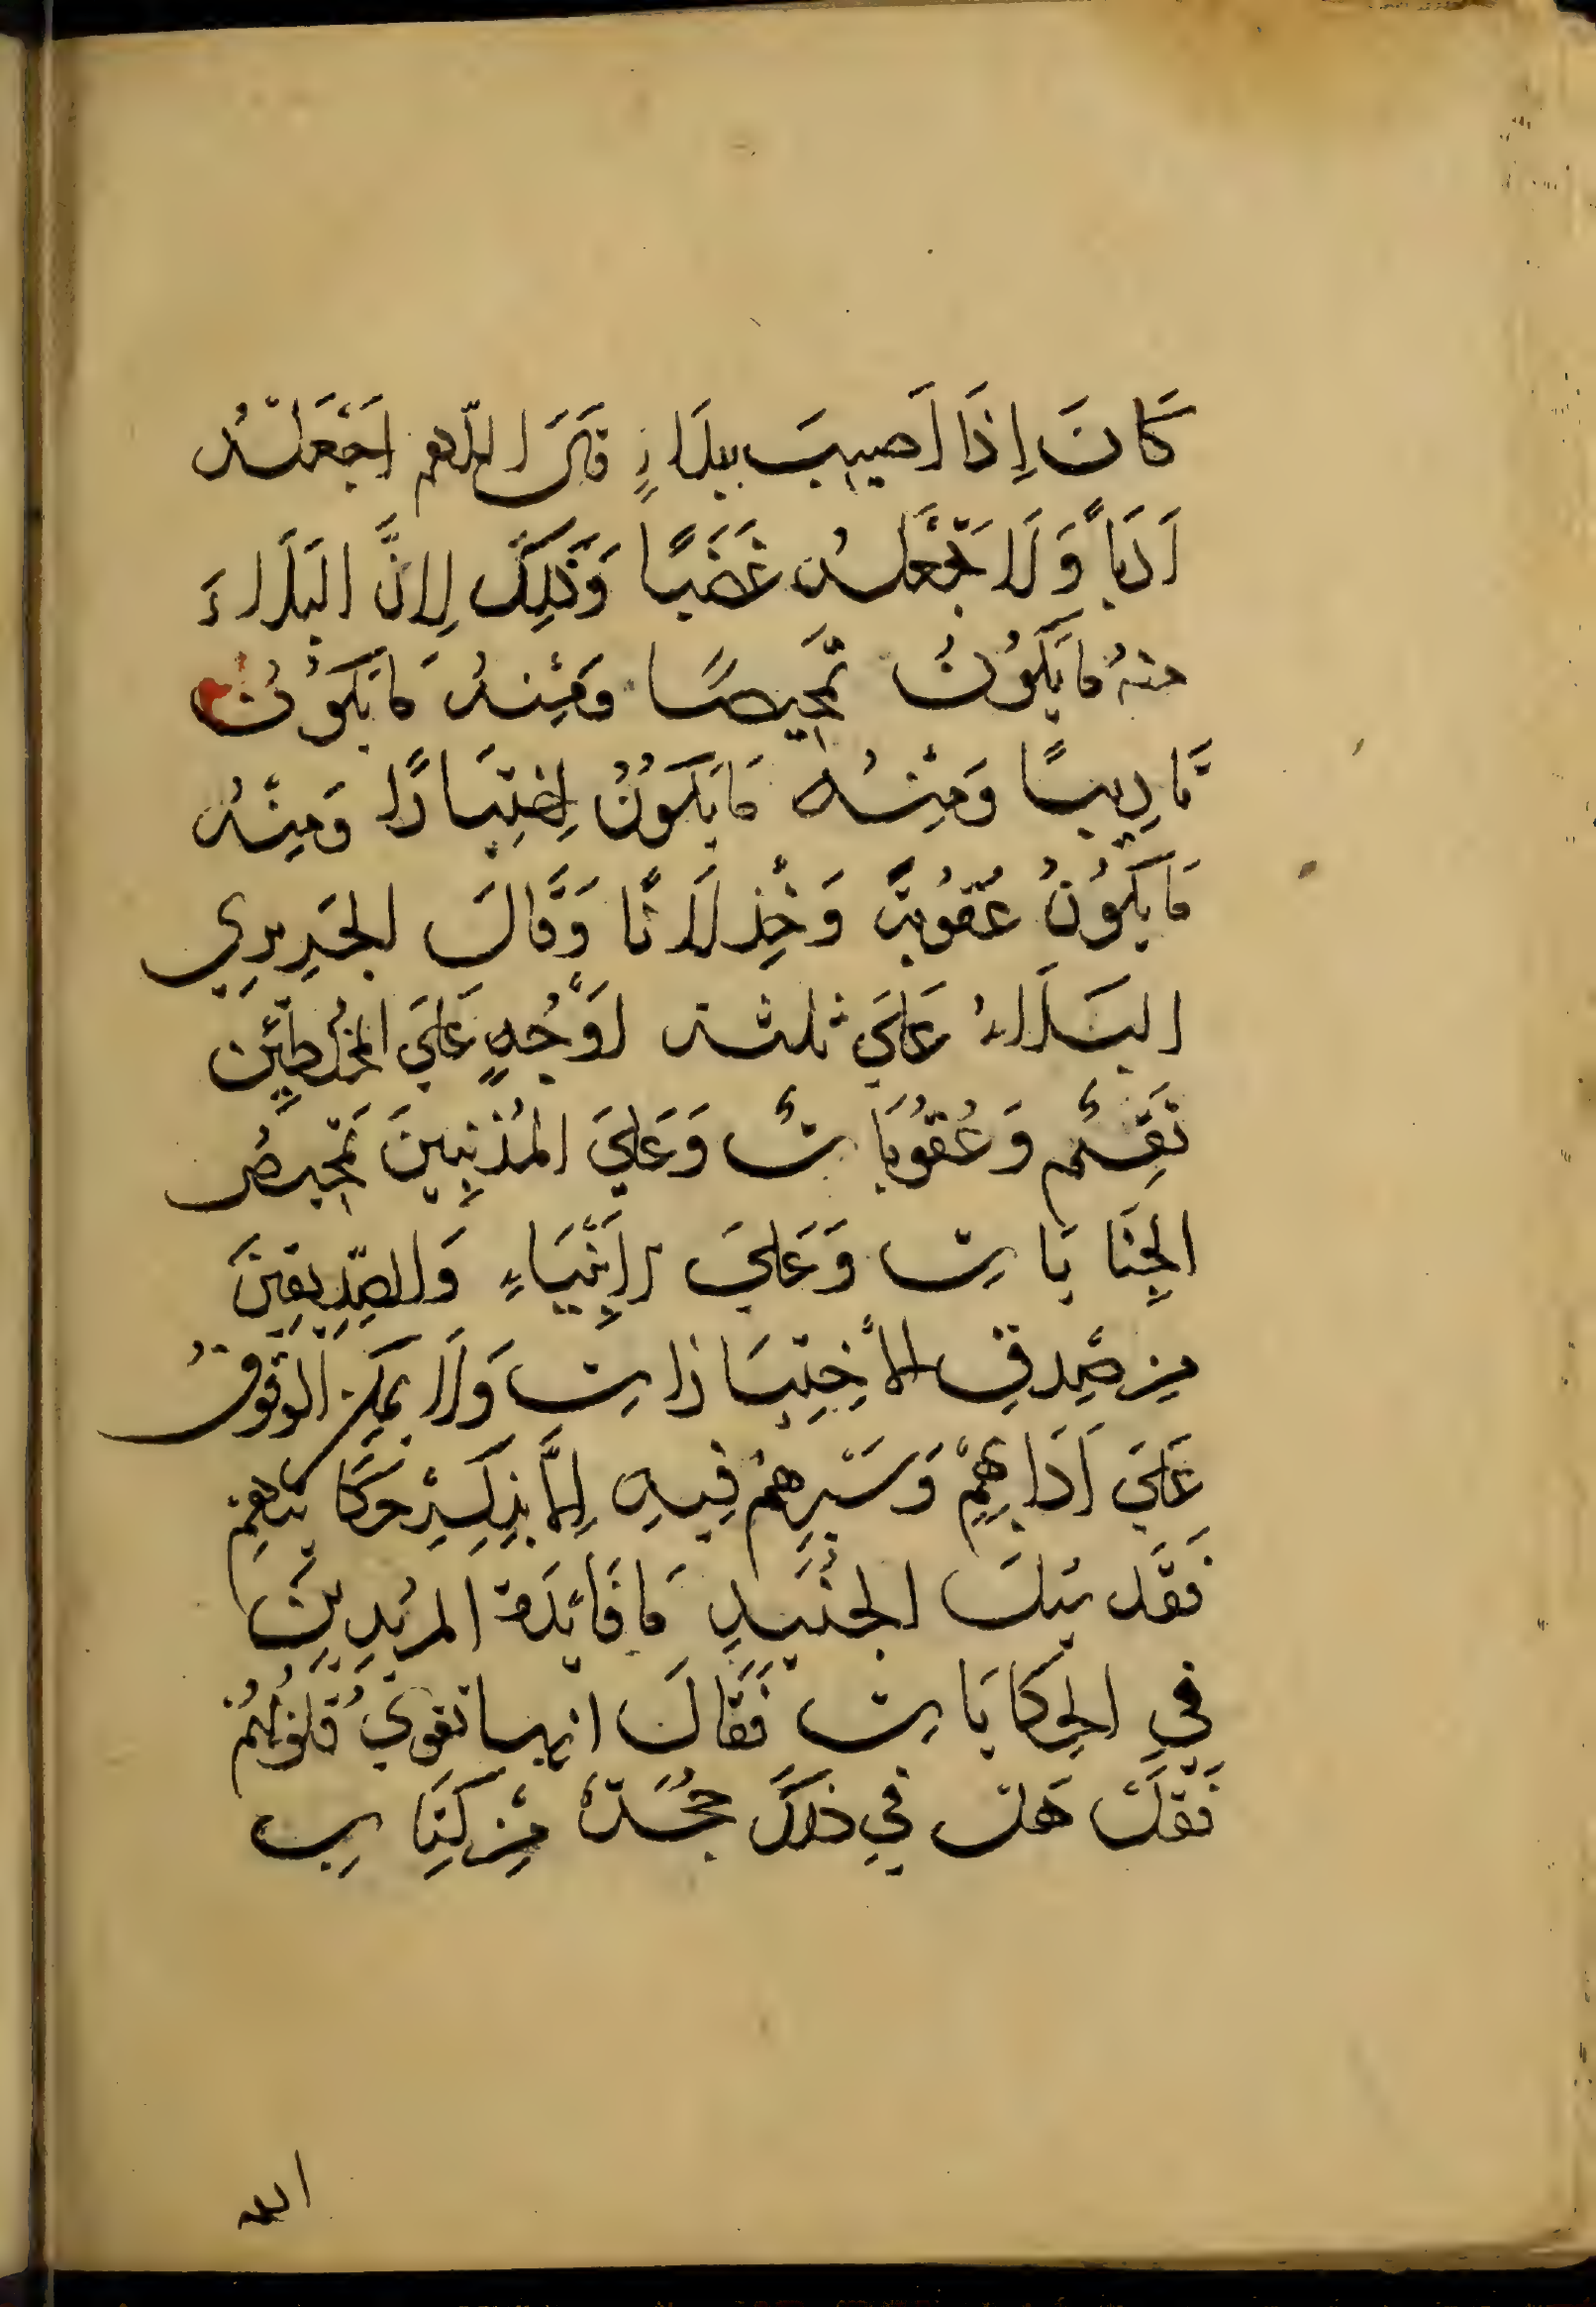 كَانَ اِذَا اَصِيبَ بِبَلَاءٍ قَالَ اللّهم اجْعَلْهُ
اَدَبًا وَلَا تَجْعَلْهُ غَضَبًا وَذَلِكَ لِاَنَّ البَلَاءَ
منهُ مَا يَكُونُ تَمْحِيصًا وَمِنْهُ مَا يَكُونُ
تَادِيبًا وَمِنْهُ مَا يَكُونُ اِخْتِبَارًا وَمِنْهُ
مَا يَكُونُ عُقُوبَةً وَخِذْلَانًا وَقَالَ الجَرِيرِي
البَلَاءُ عَلَي ثلثة اَوْجُهٍ عَلَي المُخْلِطِين
نِقَمٌ وَعُقُوبَاتٌ وَعَلَيَ المُذْنِبِينَ تَمْحِيصُ
الجِنَايَاتِ وَعَلَيَ الْاَنْبِيَاءِ وَالصِّدِّيقِينَ
مِن صِدقِ الْاِخْتِبَارَاتِ وَلَا يمكن الوقوفُ
عَلَي اَدَابِهِمْ وَسَيْرِهِمْ فِيهِ اِلَّا بِذِكْرِ حِكَايَتِهِمْ
فَقَد سُئِلَ الجُنَيدِ مَا فَائِدَة المريدِينَ
فِي الحِكَايَاتِ فَقَالَ انها تقوي قُلُوبَهُمْ
فَقُلت هَل فِي ذلكَ حُجَّةٌ مِن كِتَابِ
الله